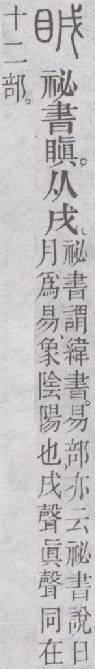 祕書瞋。从戌、
祕書謂緯書。易部亦云祕書說日
月爲易、象陰陽也戌聲眞聲同在
十二部。